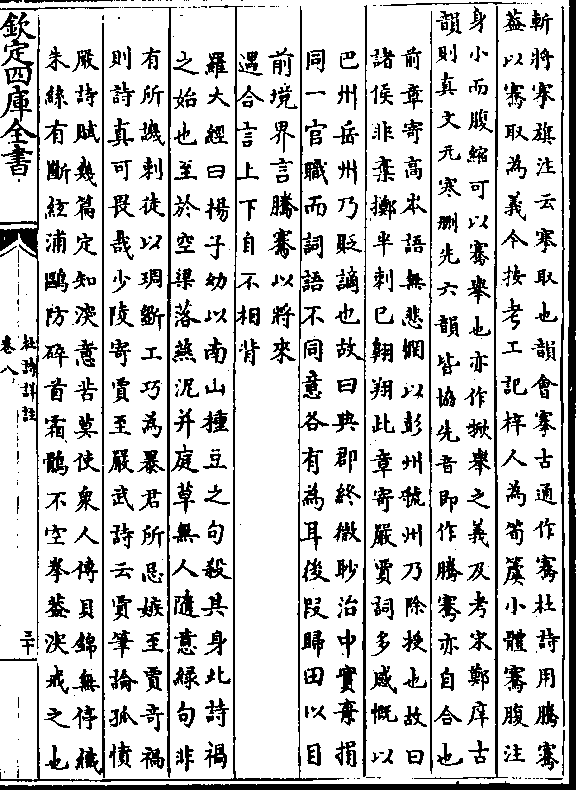 斬將搴旗注云搴取也韻會搴古通作騫杜詩用騰騫
葢以騫取為義今按考工記梓人為筍簴小體騫腹注
身小而腹縮可以騫舉也亦作掀舉之義及考宋鄭庠古
韻則真文元寒刪先六韻皆協先音即作騰騫亦自合也
前章寄高岑語無悲憫以彭州虢州乃除授也故曰
諸侯非棄擲半刺已翺翔此章寄嚴賈詞多感慨以
巴州岳州乃貶謫也故曰典郡終微眇治中實棄捐
同一官職而詞語不同意各有為耳後段歸田以目
前境界言騰騫以將來
遇合言上下自不相背
羅大經曰楊子幼以南山種豆之句殺其身此詩禍
之始也至於空梁落燕泥并庭草無人隨意綠句非
有所譏刺徒以琱斵工巧為暴君所忌嫉至賈奇禍
則詩真可畏哉少陵寄賈至嚴武詩云賈筆論孤憤
嚴詩賦幾篇定知深意苦莫使衆人傳貝錦無停織
朱絲有斷絃浦鷗防碎首霜鶻不空拳葢深戒之也
欽定四庫全書
杜詩詳註
卷八
三十